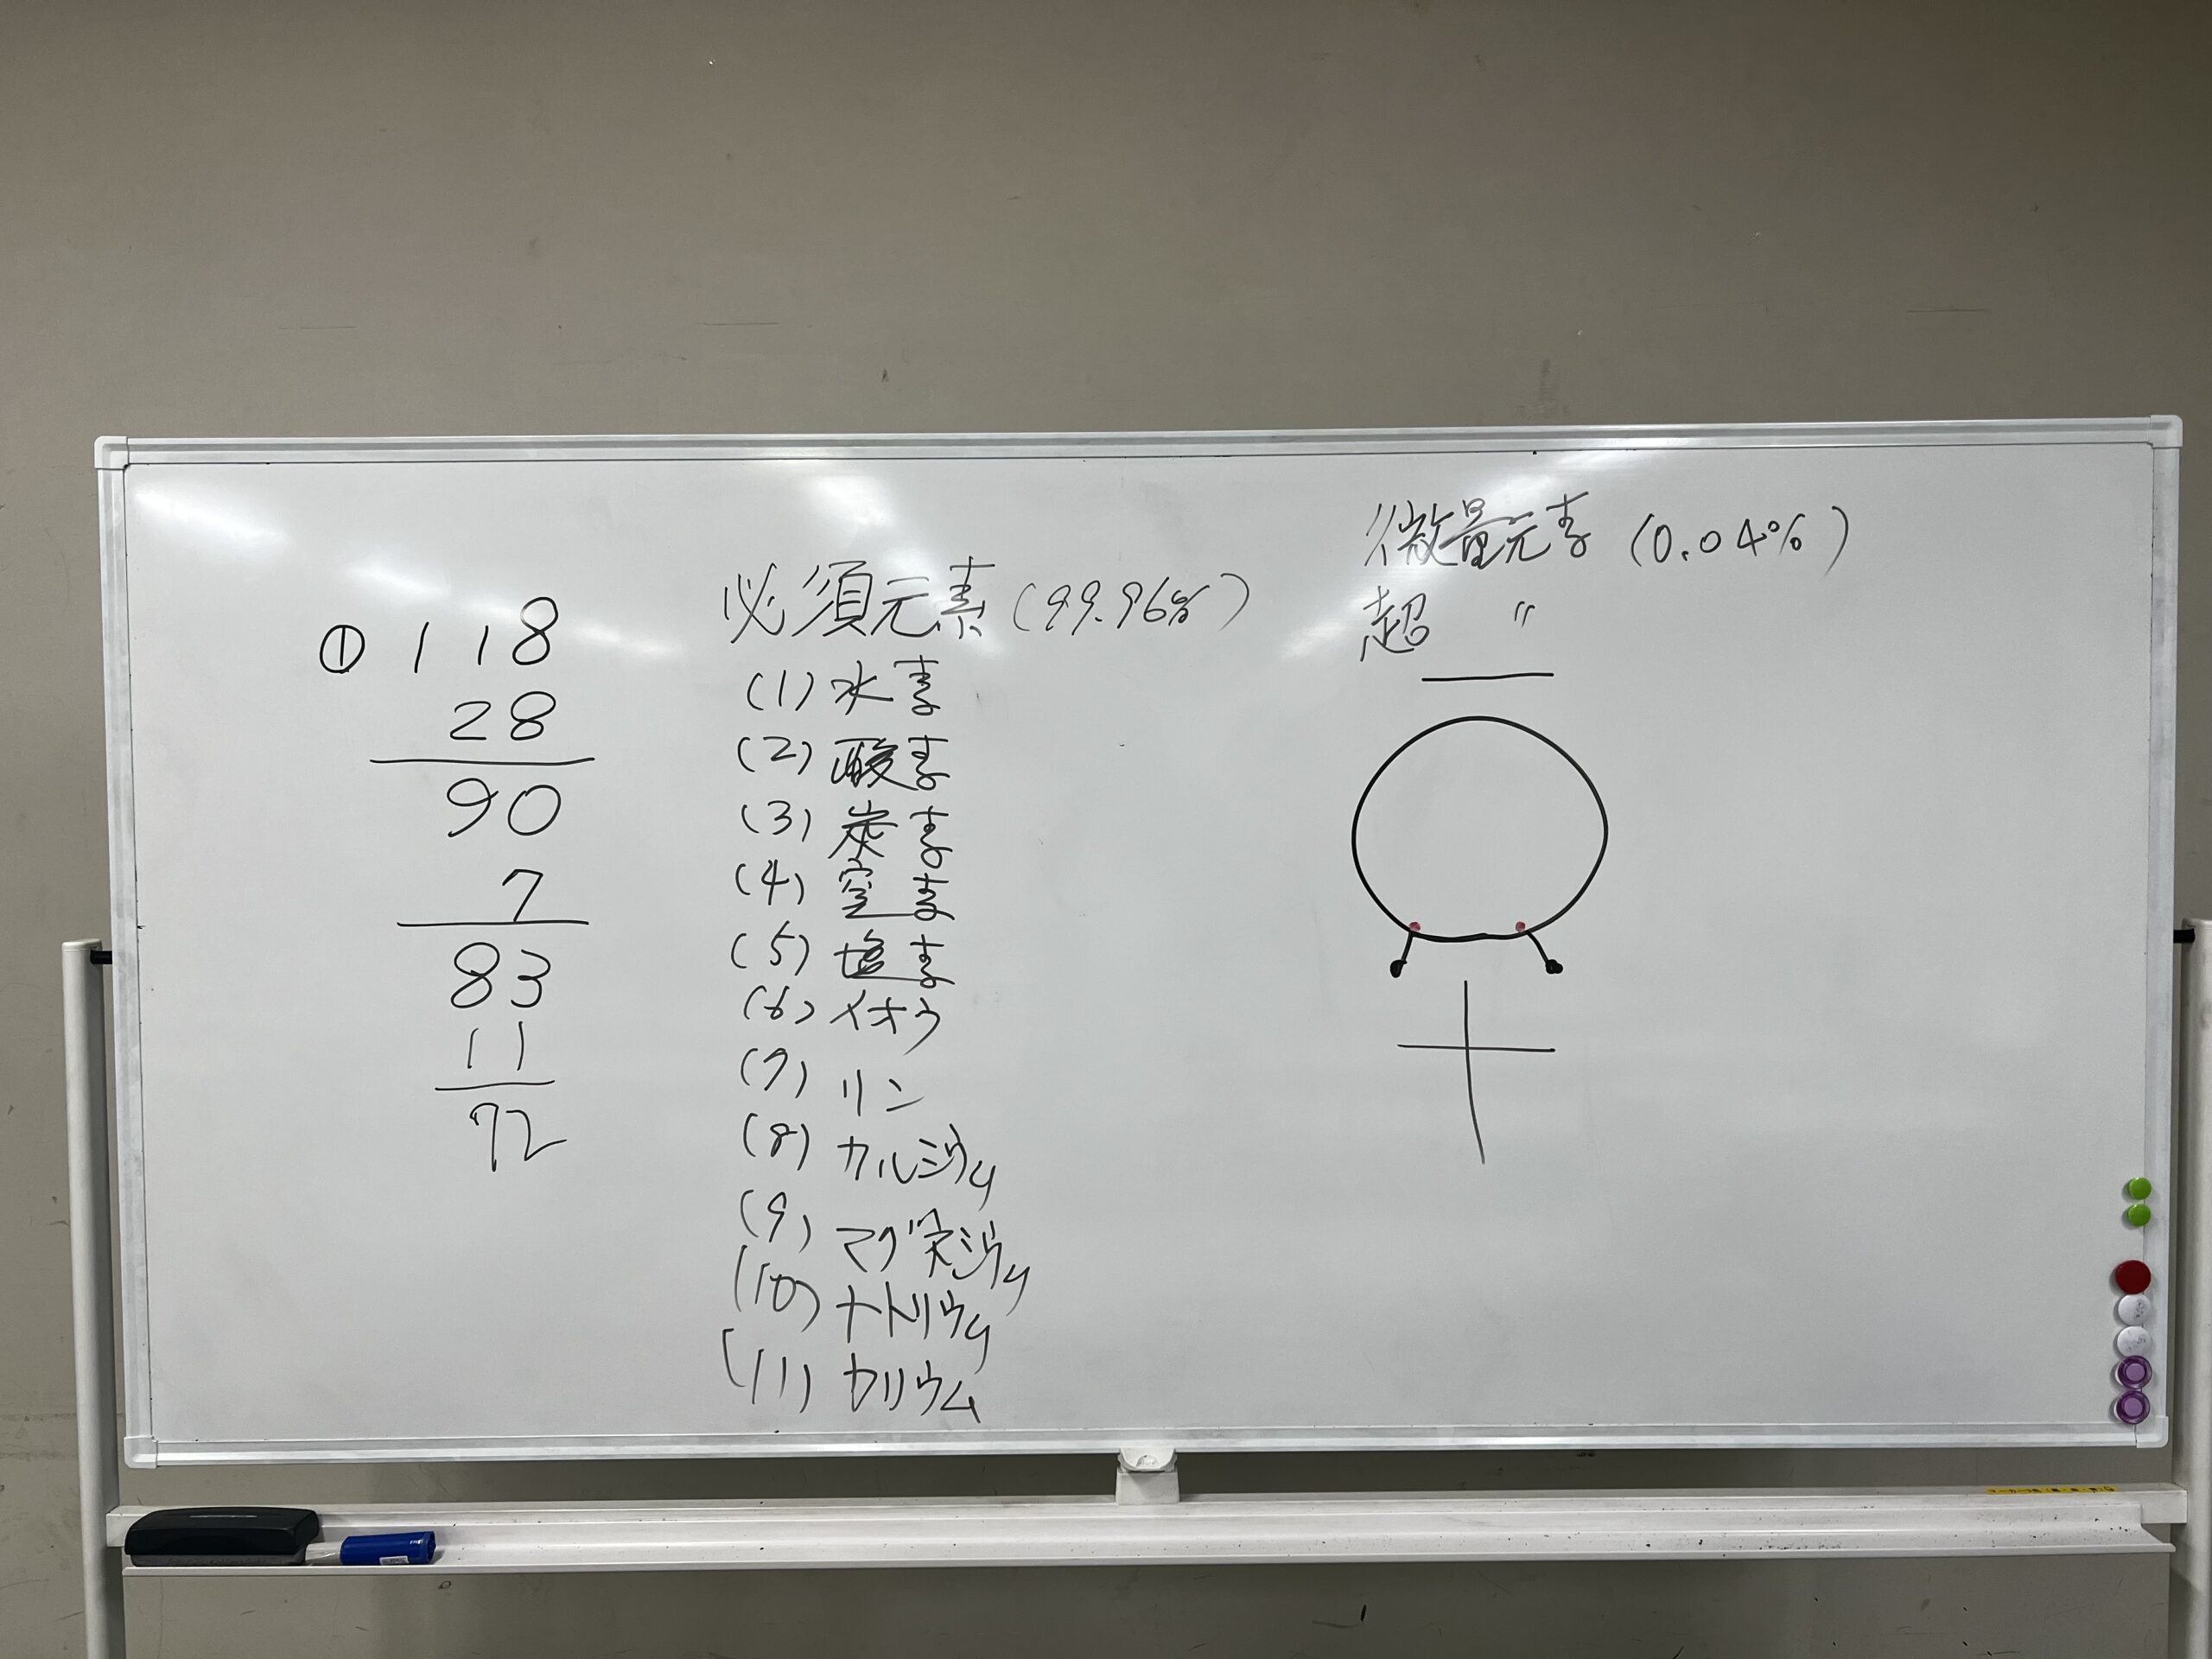 ① 118
28
90
7
83
11
72
必須元素(99.96%)
(1) 水素
(2) 酸素
(3) 炭素
(4) 窒素
(5) 塩素
(6) イオウ
(7) リン
(8) カルシウム
(9) マグネシウム
(10) ナトリウム
(11) カリウム
微量元素 (0.04%)
超 〃
－
＋